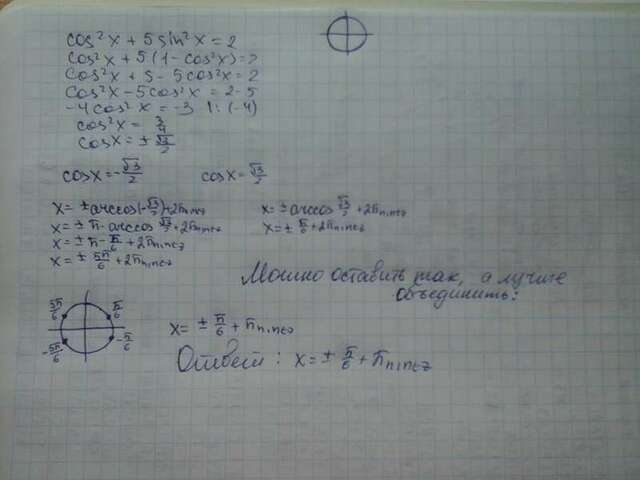 cos²x + 5 sin²x = 2
cos²x + 5(1 - cos²x) = 2
cos²x + 5 - 5cos²x = 2
cos²x - 5cos²x = 2 - 5
-4cos²x = -3 |:(-4)
cos²x = 3/4
cosx = ± √3/2
cosx = -√3/2 cosx = √3/2
x = ±arccos(-√3/2)+2πn, n∈z x = ±arccos √3/2 + 2πn, n∈z
x = ± π - arccos √3/2 + 2πn, n∈z x = ± π/6 + 2πn, n∈z
x = ± π - π/6 + 2πn, n∈z
x = ± 5π/6 + 2πn, n∈z
Можно оставить так, а лучше
объединить:
5π/6 π/6
-5π/6 -π/6
x = ± π/6 + πn, n∈z
Ответ: x = ± π/6 + πn, n∈z